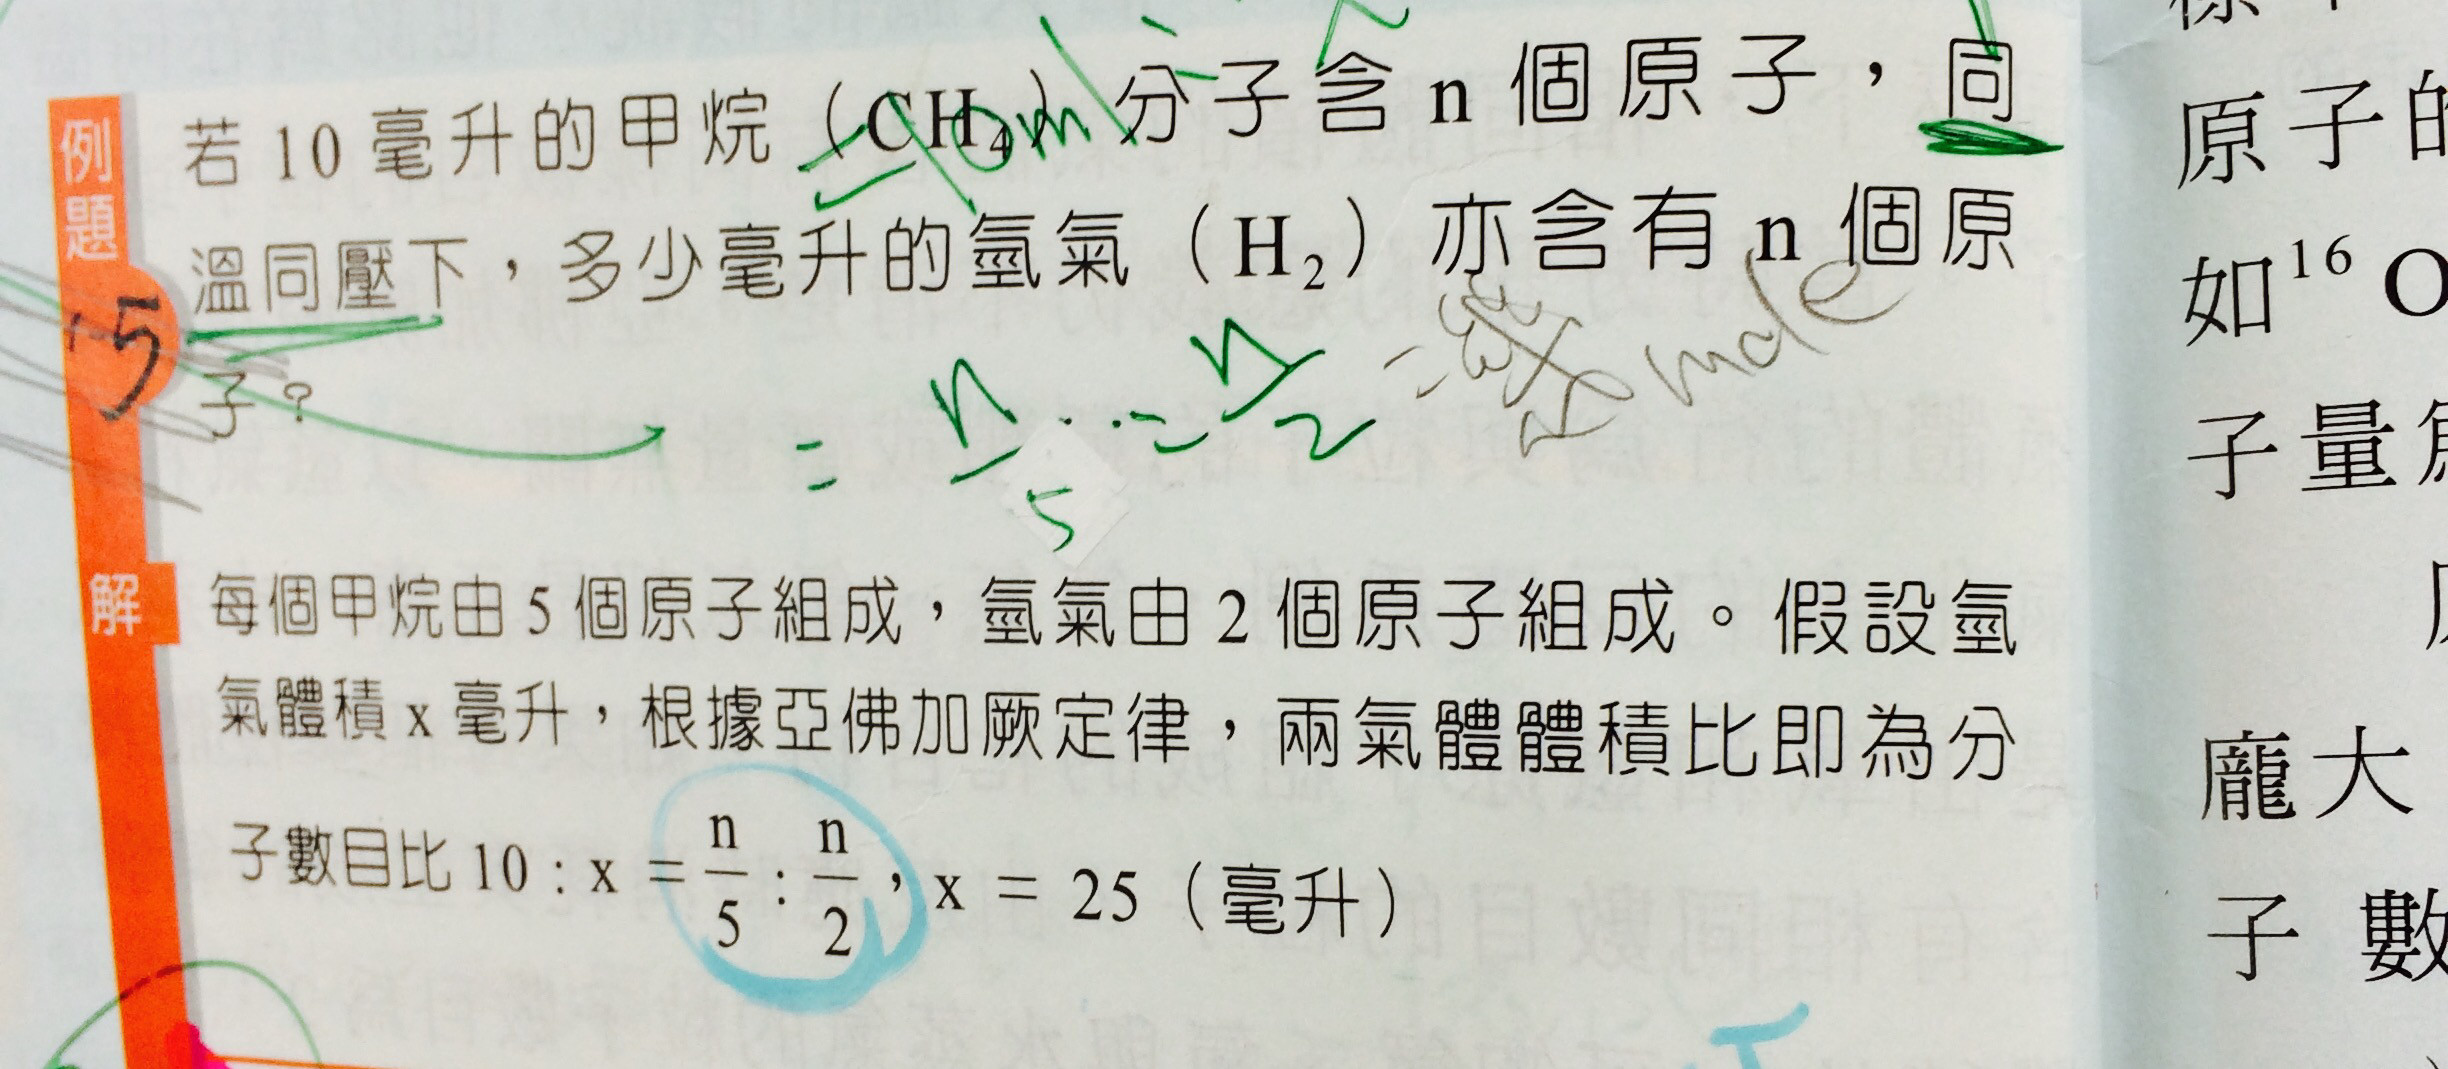 例題
若 10 毫升的甲烷（CH₄）分子含 n 個原子，同
10ml
溫同壓下，多少毫升的氫氣（H₂）亦含有 n 個原
5
子？
= n/5 : = n/2
mole
解
每個甲烷由 5 個原子組成，氫氣由 2 個原子組成。假設氫
氣體積 x 毫升，根據亞佛加厥定律，兩氣體體積比即為分
子數目比 10 : x = n/5 : n/2，x = 25（毫升）
原子的
如¹⁶O
子量
龐大
子數